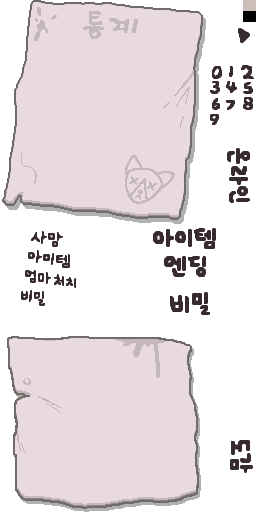 통계
0 1 2
3 4 5
6 7 8
9
온라인
사망
아이템
엄마 처치
비밀
아이템
엔딩
비밀
도감